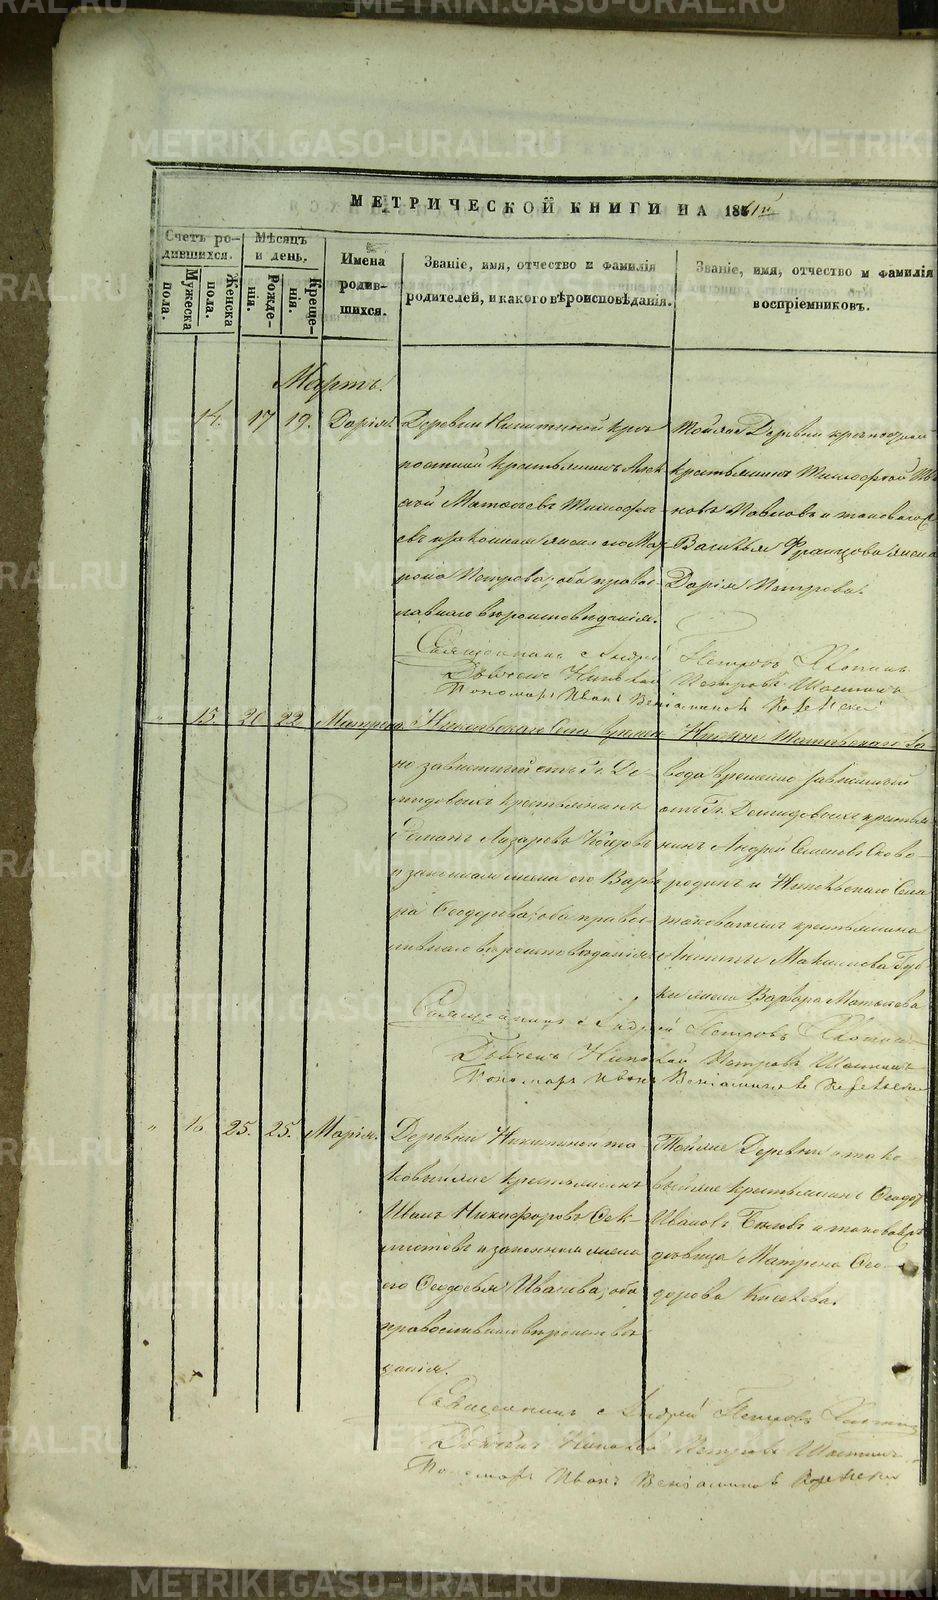 METRIKI.GASO-URAL.RU
МЕТРИЧЕСКОЙ КНИГИ НА 1861й
Счетъ ро-
дившихся.
Мужеска
пола.
Женска
пола.
Мѣсяцъ
и день.
Рожде-
нія.
Креще-
нія.
Имена
родив-
шихся.
Званіе, имя, отчество и фамилія
родителей, и какого вѣроисповѣданія.
Званіе, имя, отчество и фамилія
воспріемниковъ.
Мартъ.
14. 17 19. Дарія.
Деревни Никитиной крѣ
постный крестьянинъ Алек
сѣй Матѳеевъ Тимофѣ
евъ и законная жена его Мат
рона Петрова; оба право-
славнаго вѣроисповѣданія.
Тойже Деревни крѣпостной
крестьянинъ Тимофей Ива
новъ Павловъ и таковагоже
Василья Францова жена
Дарія Петрова.
Священникъ Андрей Петровъ
Дьячекъ Николай Петровъ
Пономарь Иванъ Веніаминовъ
" 15. 20 22 Матрена
Никольскаго Села времен
но зависимый отъ Гг. Де-
мидовыхъ крестьянинъ
Романъ Лазаревъ
и законная жена его Варва
ра Ѳеодорова; оба право-
славнаго вѣроисповѣданія
Нижне За-
вода временно зависимый
отъ Гг. Демидовыхъ крестья
нинъ Андрей Семеновъ Сково-
родинъ и Никольскаго Села
таковагоже крестьянина
Антипы Максимова
жена Варвара Матѳеева
Священникъ Андрей Петровъ
Дьячекъ Николай Петровъ
Пономарь Иванъ Веніаминовъ
" 16. 25. 25. Марія.
Деревни Никитиной та
ковыйже крестьянинъ
Иванъ Никифоровъ Ѳек-
листовъ и законная жена
его Ѳеодосья Иванова; оба
православнаго вѣроисповѣ
данія.
Тойже Деревни тако
выйже крестьянинъ Ѳеодоръ
Ивановъ и таковаяже
дѣвица Матрена Ѳео-
дорова Киселева.
Священникъ Андрей Петровъ
Дьячекъ Николай Петровъ
Пономарь Иванъ Веніаминовъ
METRIKI.GASO-URAL.RU